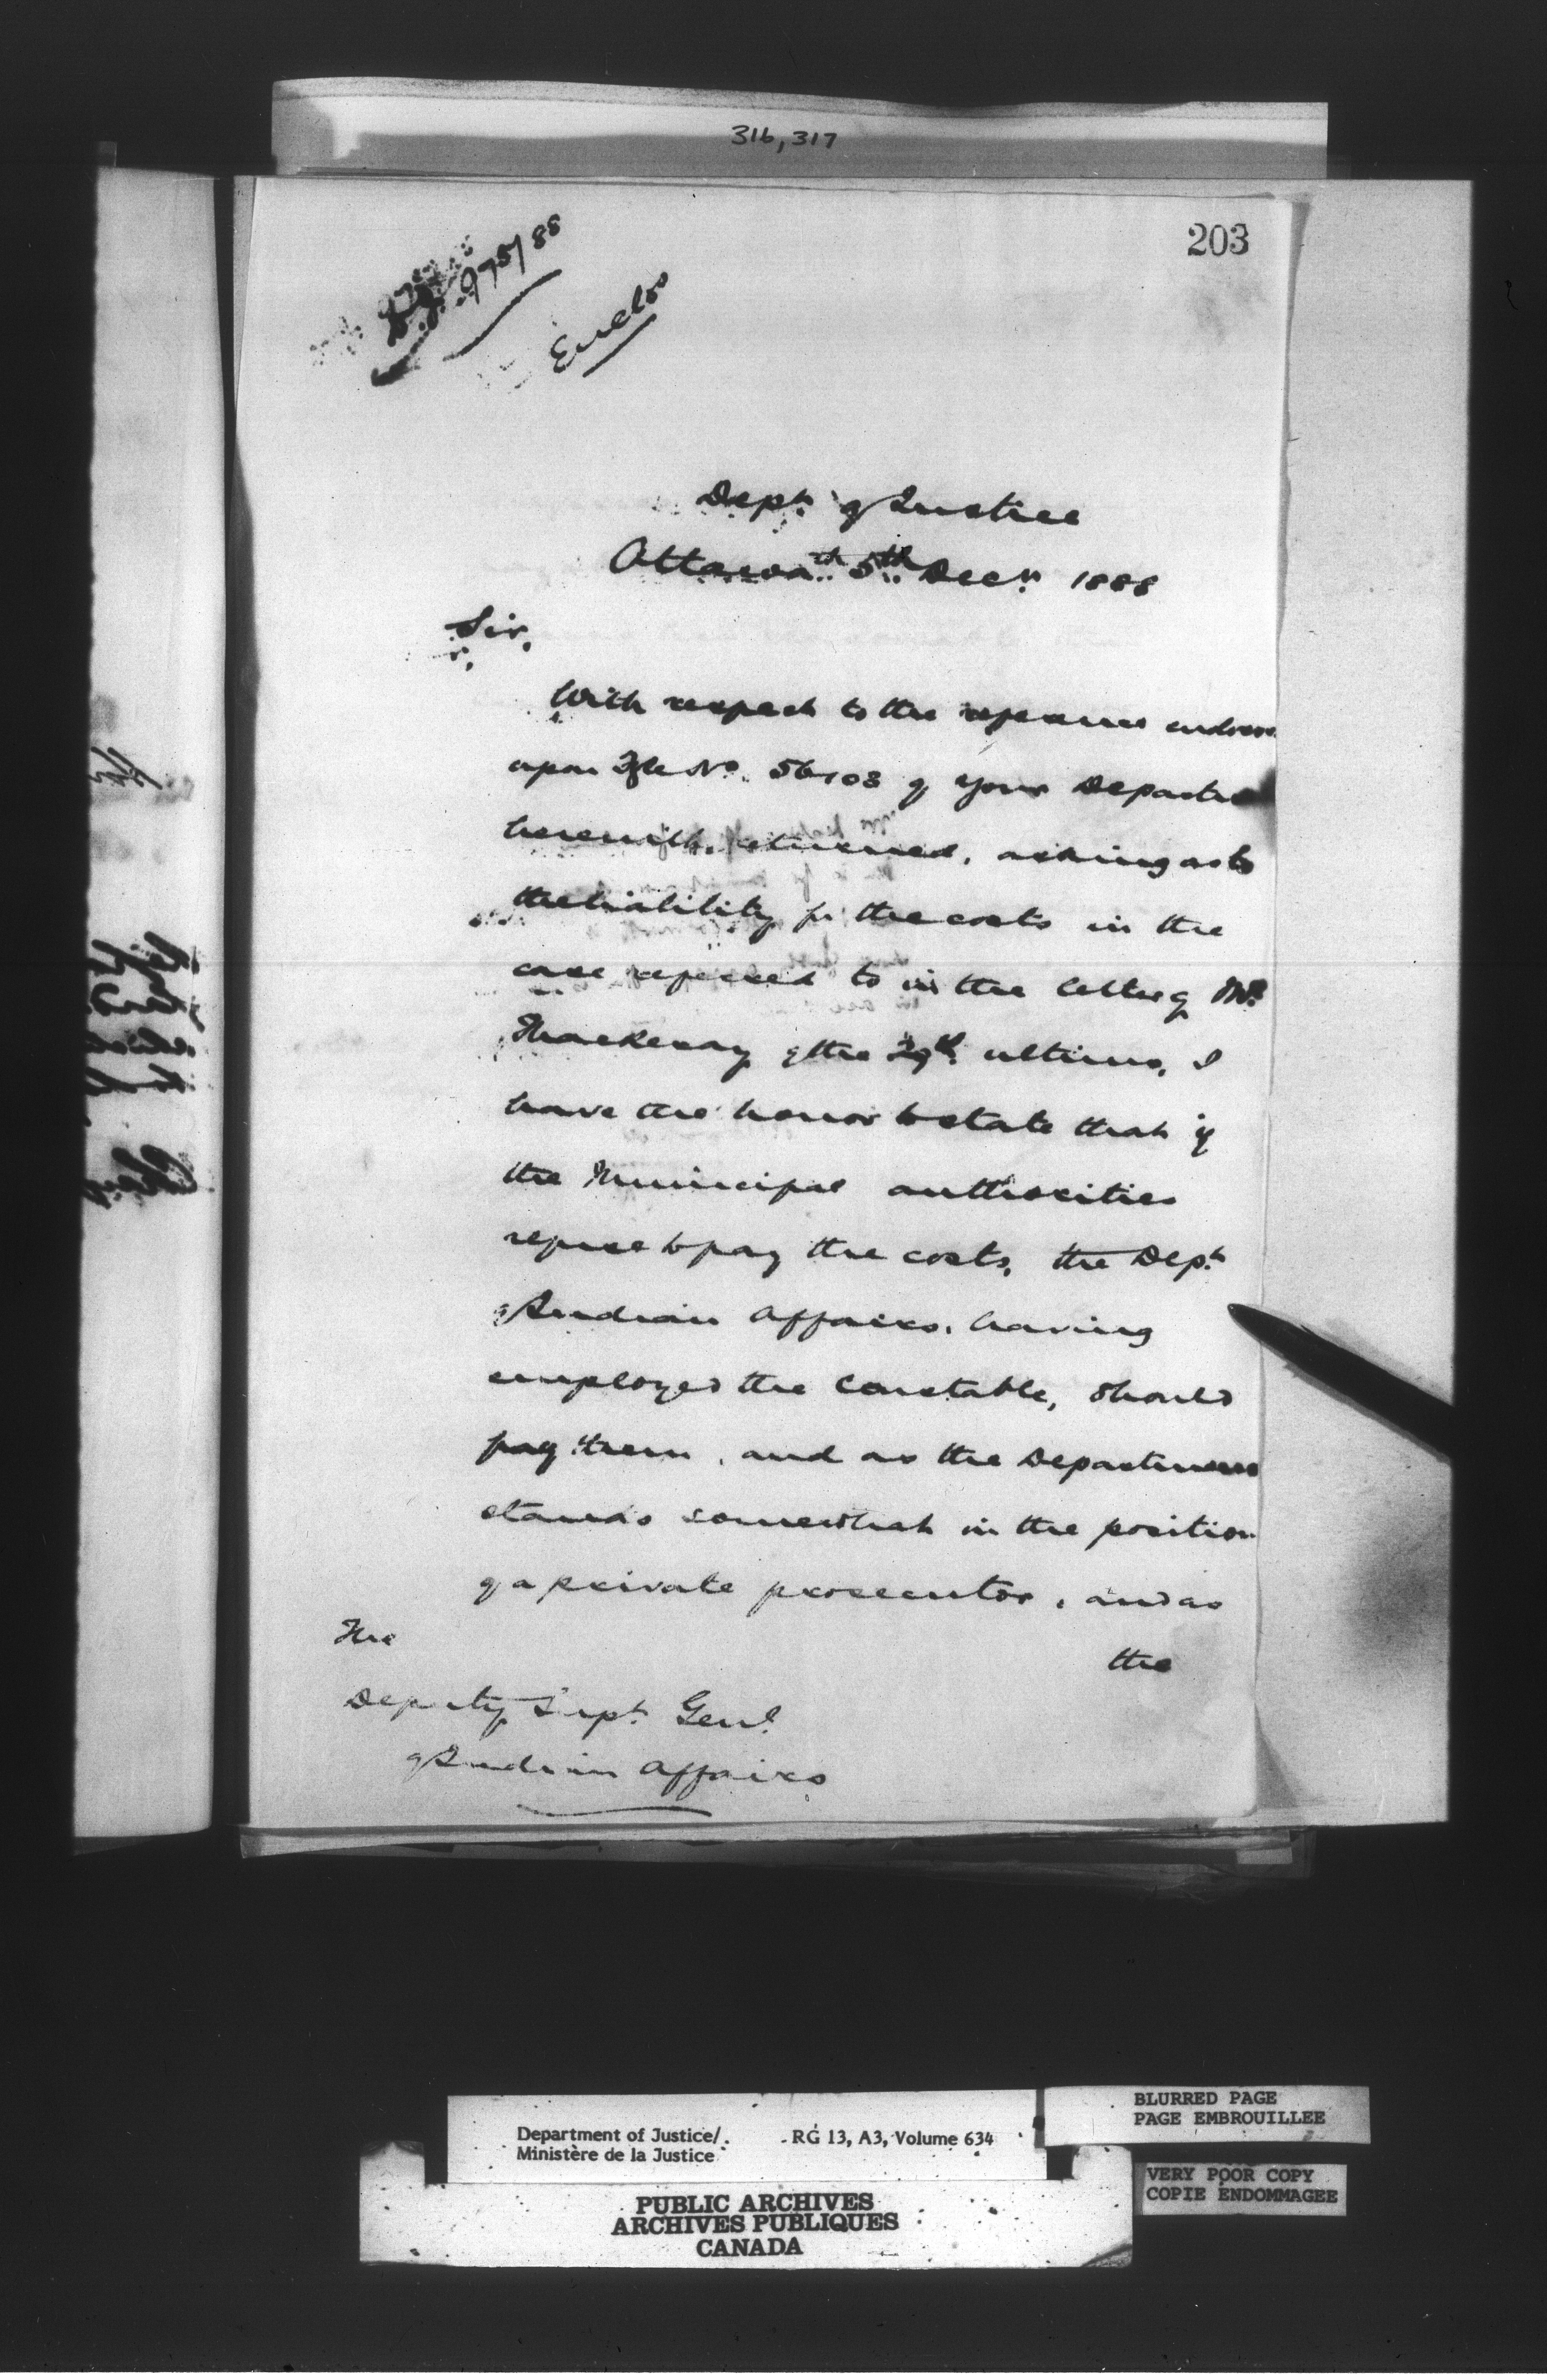 316, 317
203
975/88
Enclos
Dept. of Justice
Ottawa 5th Decr. 1888
Sir,
With respect to the reference endorse
upon No. 56103 of your Departm
herewith returned, asking as to
the liability for the costs in the
case referred to in the letter of Mr.
Thackeray of the 29th ultimo, I
have the honor to state that if
the Municipal authorities
refuse to pay the costs, the Dept.
of Indian Affairs, having
employed the Constable, should
pay them, and as the Department
stands somewhat in the position
of a private prosecutor, and as
the
The
Deputy Supt. Genl.
of Indian Affairs
Department of Justice/
Ministère de la Justice
RG 13, A3, Volume 634
BLURRED PAGE
PAGE EMBROUILLEE
VERY POOR COPY
COPIE ENDOMMAGEE
PUBLIC ARCHIVES
ARCHIVES PUBLIQUES
CANADA